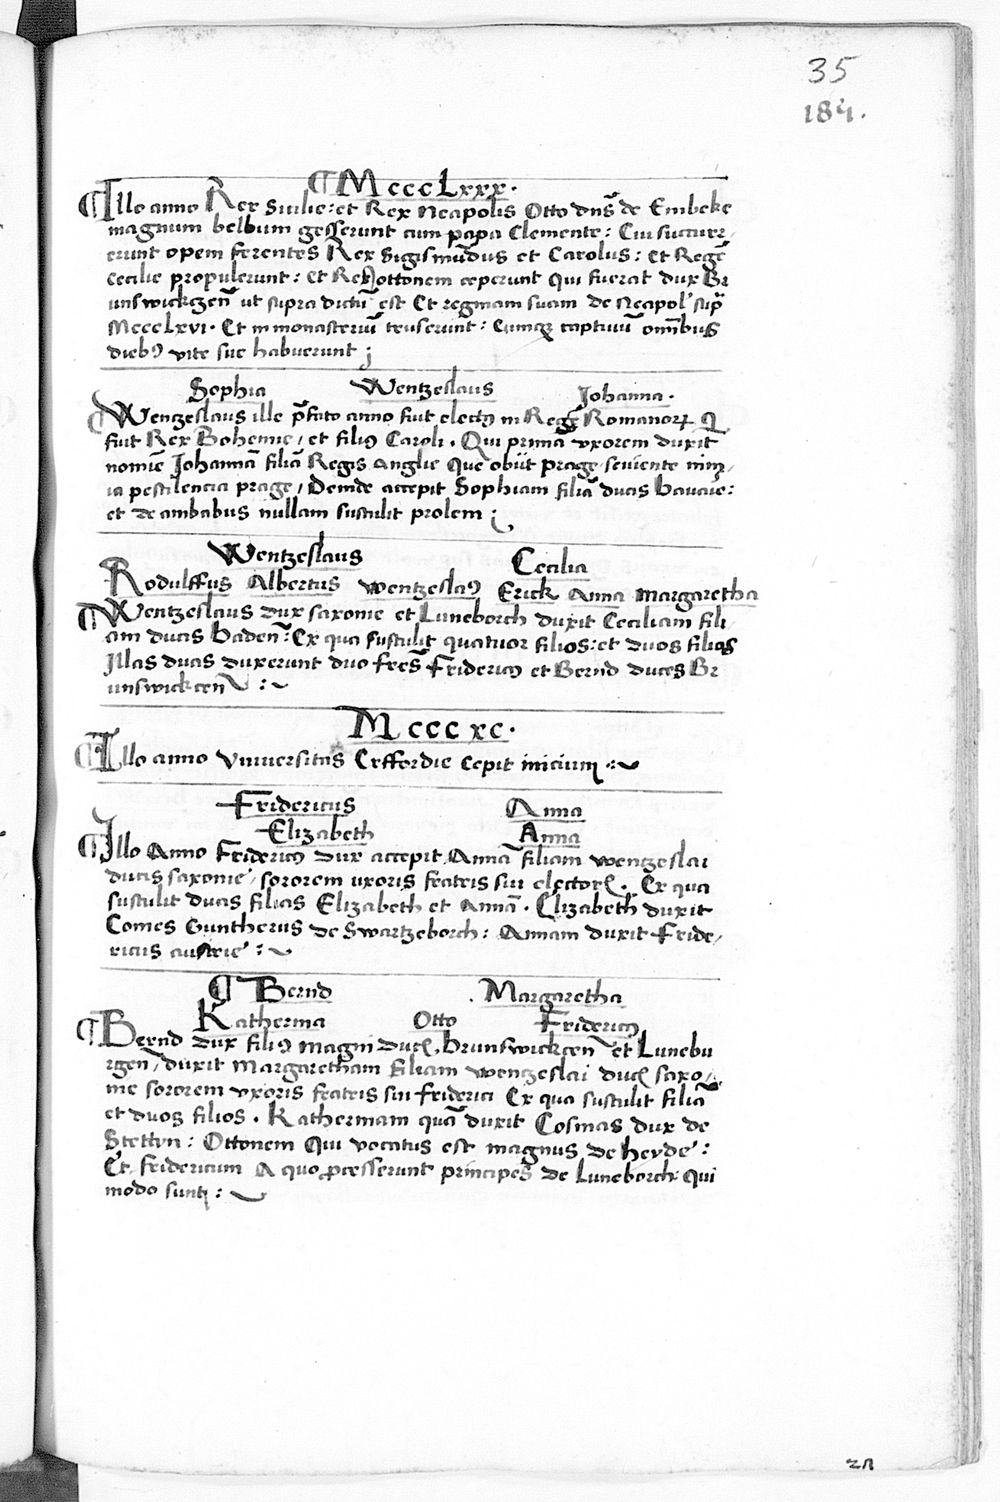 35
184.
¶ M cccLxxx.
¶ Illo anno Rex Sicilie: et Rex Neapolis Otto dns̄ de Embeke
magnum bellum gesserunt cum papa Clemente: Cui succurr,
erunt opem ferentes Rex Sigismūdus et Carolus: Et Regē
Cecilie propulerunt: Et Rex ottonem ceperunt Qui fuerat dux Br
unswickczen̄ ut supra dictū est Et reginam suam de Neapol' sup̄
MccccLxvi. Et in monasteriū truserunt: Cumqꝫ captiuū om̄ibus
diebꝰ vite sue habuerunt ;
Sophia Wentzeslaus Johanna.
¶ Wentzeslaus ille p̄fato anno fuit electꝰ in Regē Romanoꝝ Q
fuit Rex Bohemie, et filiꝰ Caroli. Qui primā vxorem duxit
nomīe Johannā filiā Regis Anglie Que obiit prage seuiente nim,
ia pestilencia prage, Deinde accepit Sophiam filiā ducis bauarie:
et de ambabus nullam sustulit prolem ;
Wentzeslaus Cecilia
Rodulffus Albertus wentzeslaꝰ Erick Anna Margaretha
¶ Wentzeslaus dux saxonie et Luneborch duxit Ceciliam fili,
am ducis baden̄: Ex qua sustulit quatuor filios: et duos filias
Illas duas duxerunt duo fr̄es Friderichꝰ et Bernd duces Br
unswickcen̄ :~
M ccc xc.
¶ Illo anno Vniuersitas Erffordie cepit inicium :~
Fridericus Anna
Elizabeth Anna
¶ Illo Anno Fridericꝰ dux accepit Annā filiam wentzeslai
ducis saxonie, sororem uxoris fratris sui electoris. Ex qua
sustulit duas filias Elizabeth et Annā. Elizabeth duxit
Comes Guntherus de Swartzeborch: Annam duxit Fride,
ricus austrie :~
¶ Bernd Margaretha
Katherina Otto Fridericꝰ
¶ Bernd dux filiꝰ magni ducis brunswickcen̄ et Lunebu
rgen̄, duxit Margaretham filiam wentzeslai ducis saxo,
nie sororem vxoris fratris sui friderici Ex qua sustulit filiā
et duos filios. Katherinam quā duxit Cosmas dux de
Stettyn: Ottonem Qui vocatus est magnus de heyde:
Et fridericum A quo ꝓcesserunt principes de Luneborch Qui
modo sunt :~